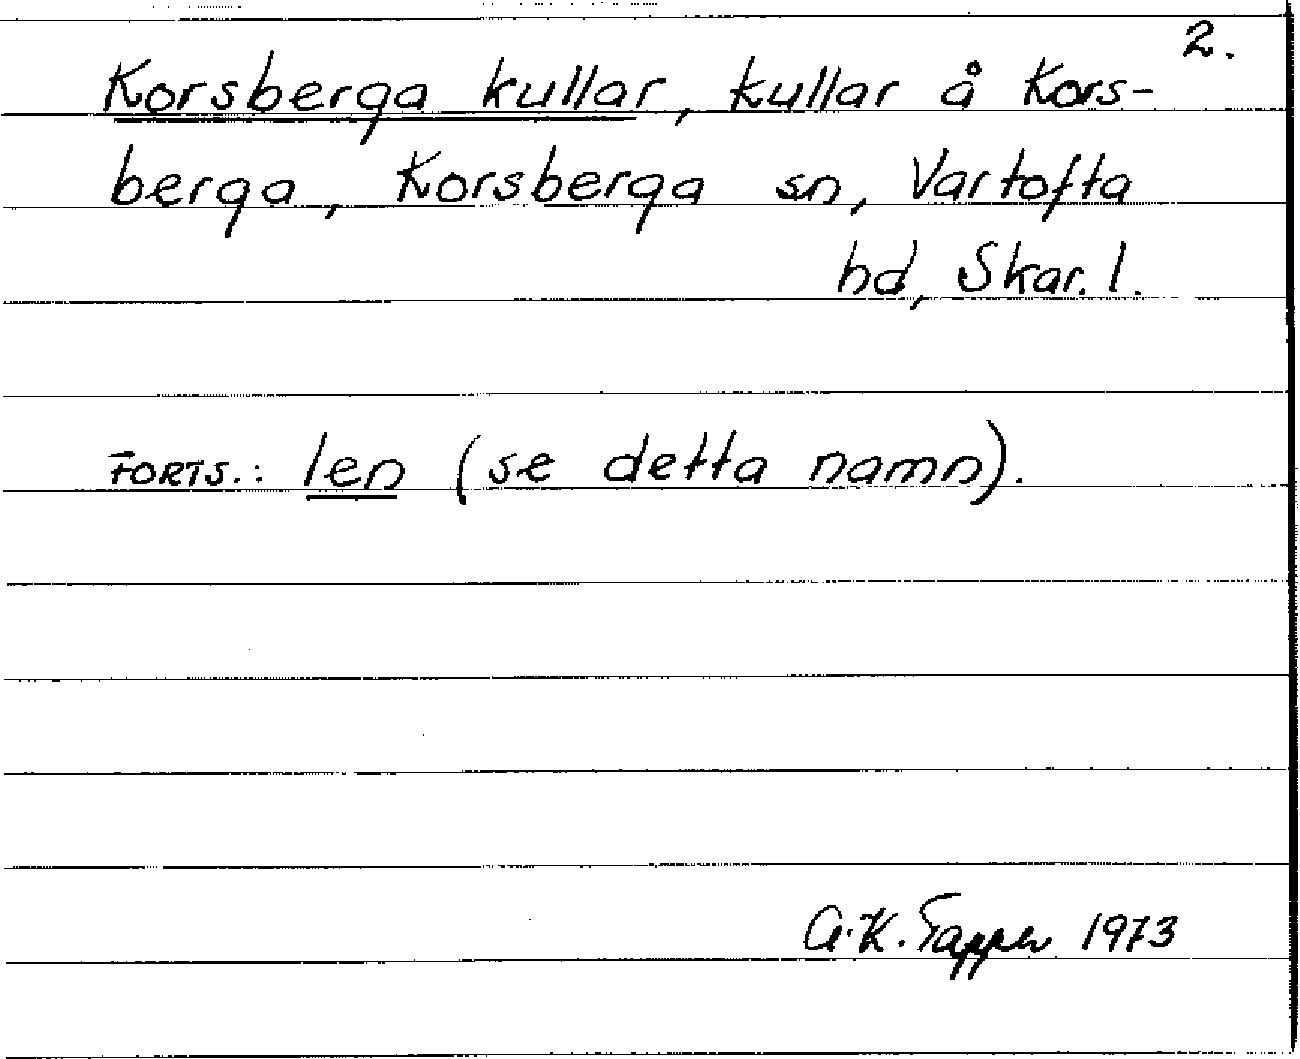 2.
Korsberga kullar, kullar å Kors-
berga, Korsberga sn, Vartofta
hd, Skar. l.
FORTS.: len (se detta namn).
A.K. Tapper 1973